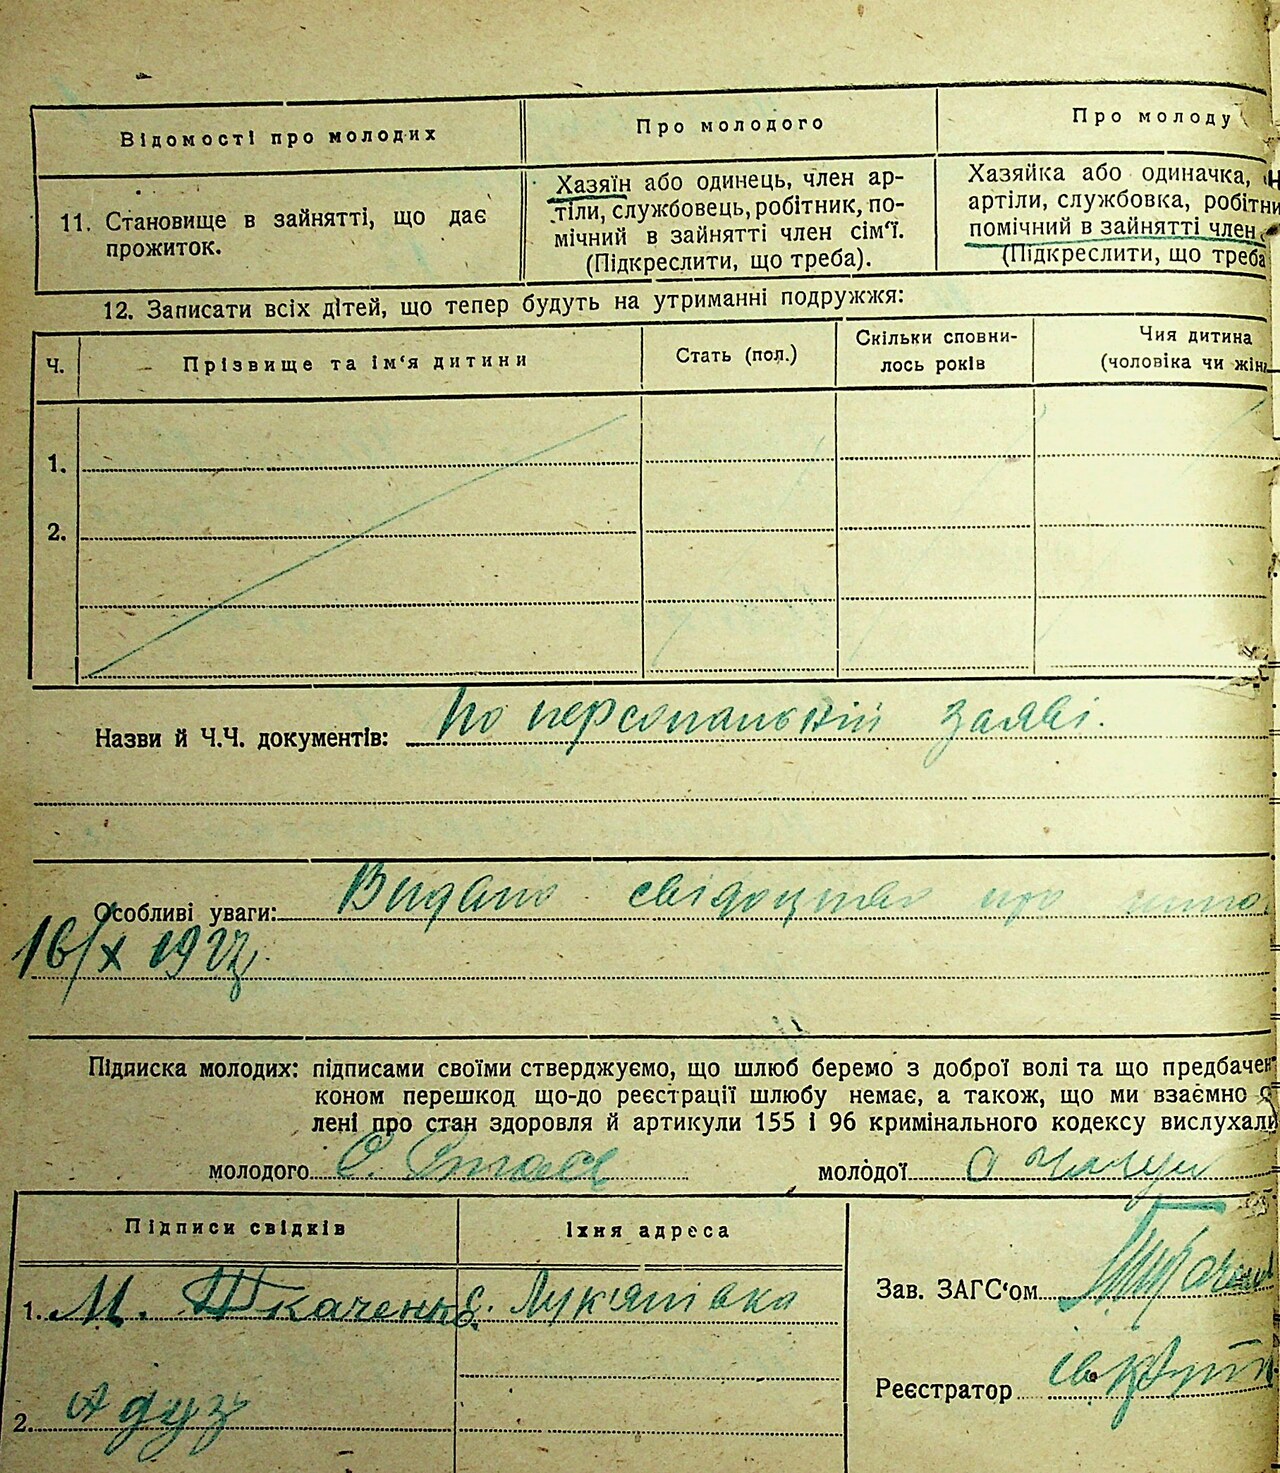 Відомості про молодих
Про молодого
Про молоду
11. Становище в зайнятті, що дає
прожиток.
Хазяїн або одинець, член ар-
тіли, службовець, робітник, по-
мічний в зайнятті член сім'ї.
(Підкреслити, що треба).
Хазяйка або одиначка,
артіли, службовка, робітни
помічний в зайнятті член
(Підкреслити, що треба
12. Записати всіх дітей, що тепер будуть на утриманні подружжя:
Ч.
Прізвище та ім'я дитини
Стать (пол.)
Скільки сповни-
лось років
Чия дитина
(чоловіка чи жін
1.
2.
Назви й Ч.Ч. документів: По персональній заяві.
Особливі уваги: Видано свідоцтво про
16/X 1927
Підписка молодих: підписами своїми стверджуємо, що шлюб беремо з доброї волі та що предбачен
коном перешкод що-до реєстрації шлюбу немає, а також, що ми взаємно
лені про стан здоровля й артикули 155 і 96 кримінального кодексу вислухали
молодого
молодої
Підписи свідків
Їхня адреса
1. М. Ткаченко
с. Лук'янівка
Зав. ЗАГС'ом
Реєстратор
2.